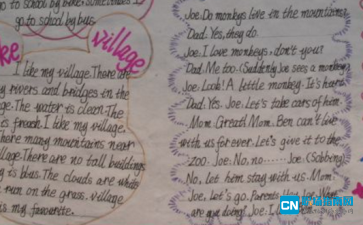 to school by bike. Sometimes I
go to school by bus.
ke
village
I like my village. There are
y rivers and bridges in the
ge. The water is clean. The
is fresh. I like my village.
here many mountains near
llage. There are no tall buildings
is blus. The clouds are white
run on the grass. village
is my favourite.
Joe: Do monkeys live in the mountains
Dad: Yes, they do.
Joe: I love monkeys, don't you?
Dad: Me too. (Suddenly Joe sees a monkey)
Joe: Look! A little monkey. It's hurt
Dad: Yes. Joe. Let's take cars of him.
Mom: Great! Mom. Ben can't live
with us for ever. Let's give it to the
zoo. Joe: No, no...... Joe: (Sobbing)
No, let him stay with us. Mom:
Joe, let's go. Parents:
are you doing? Joe: I
CN